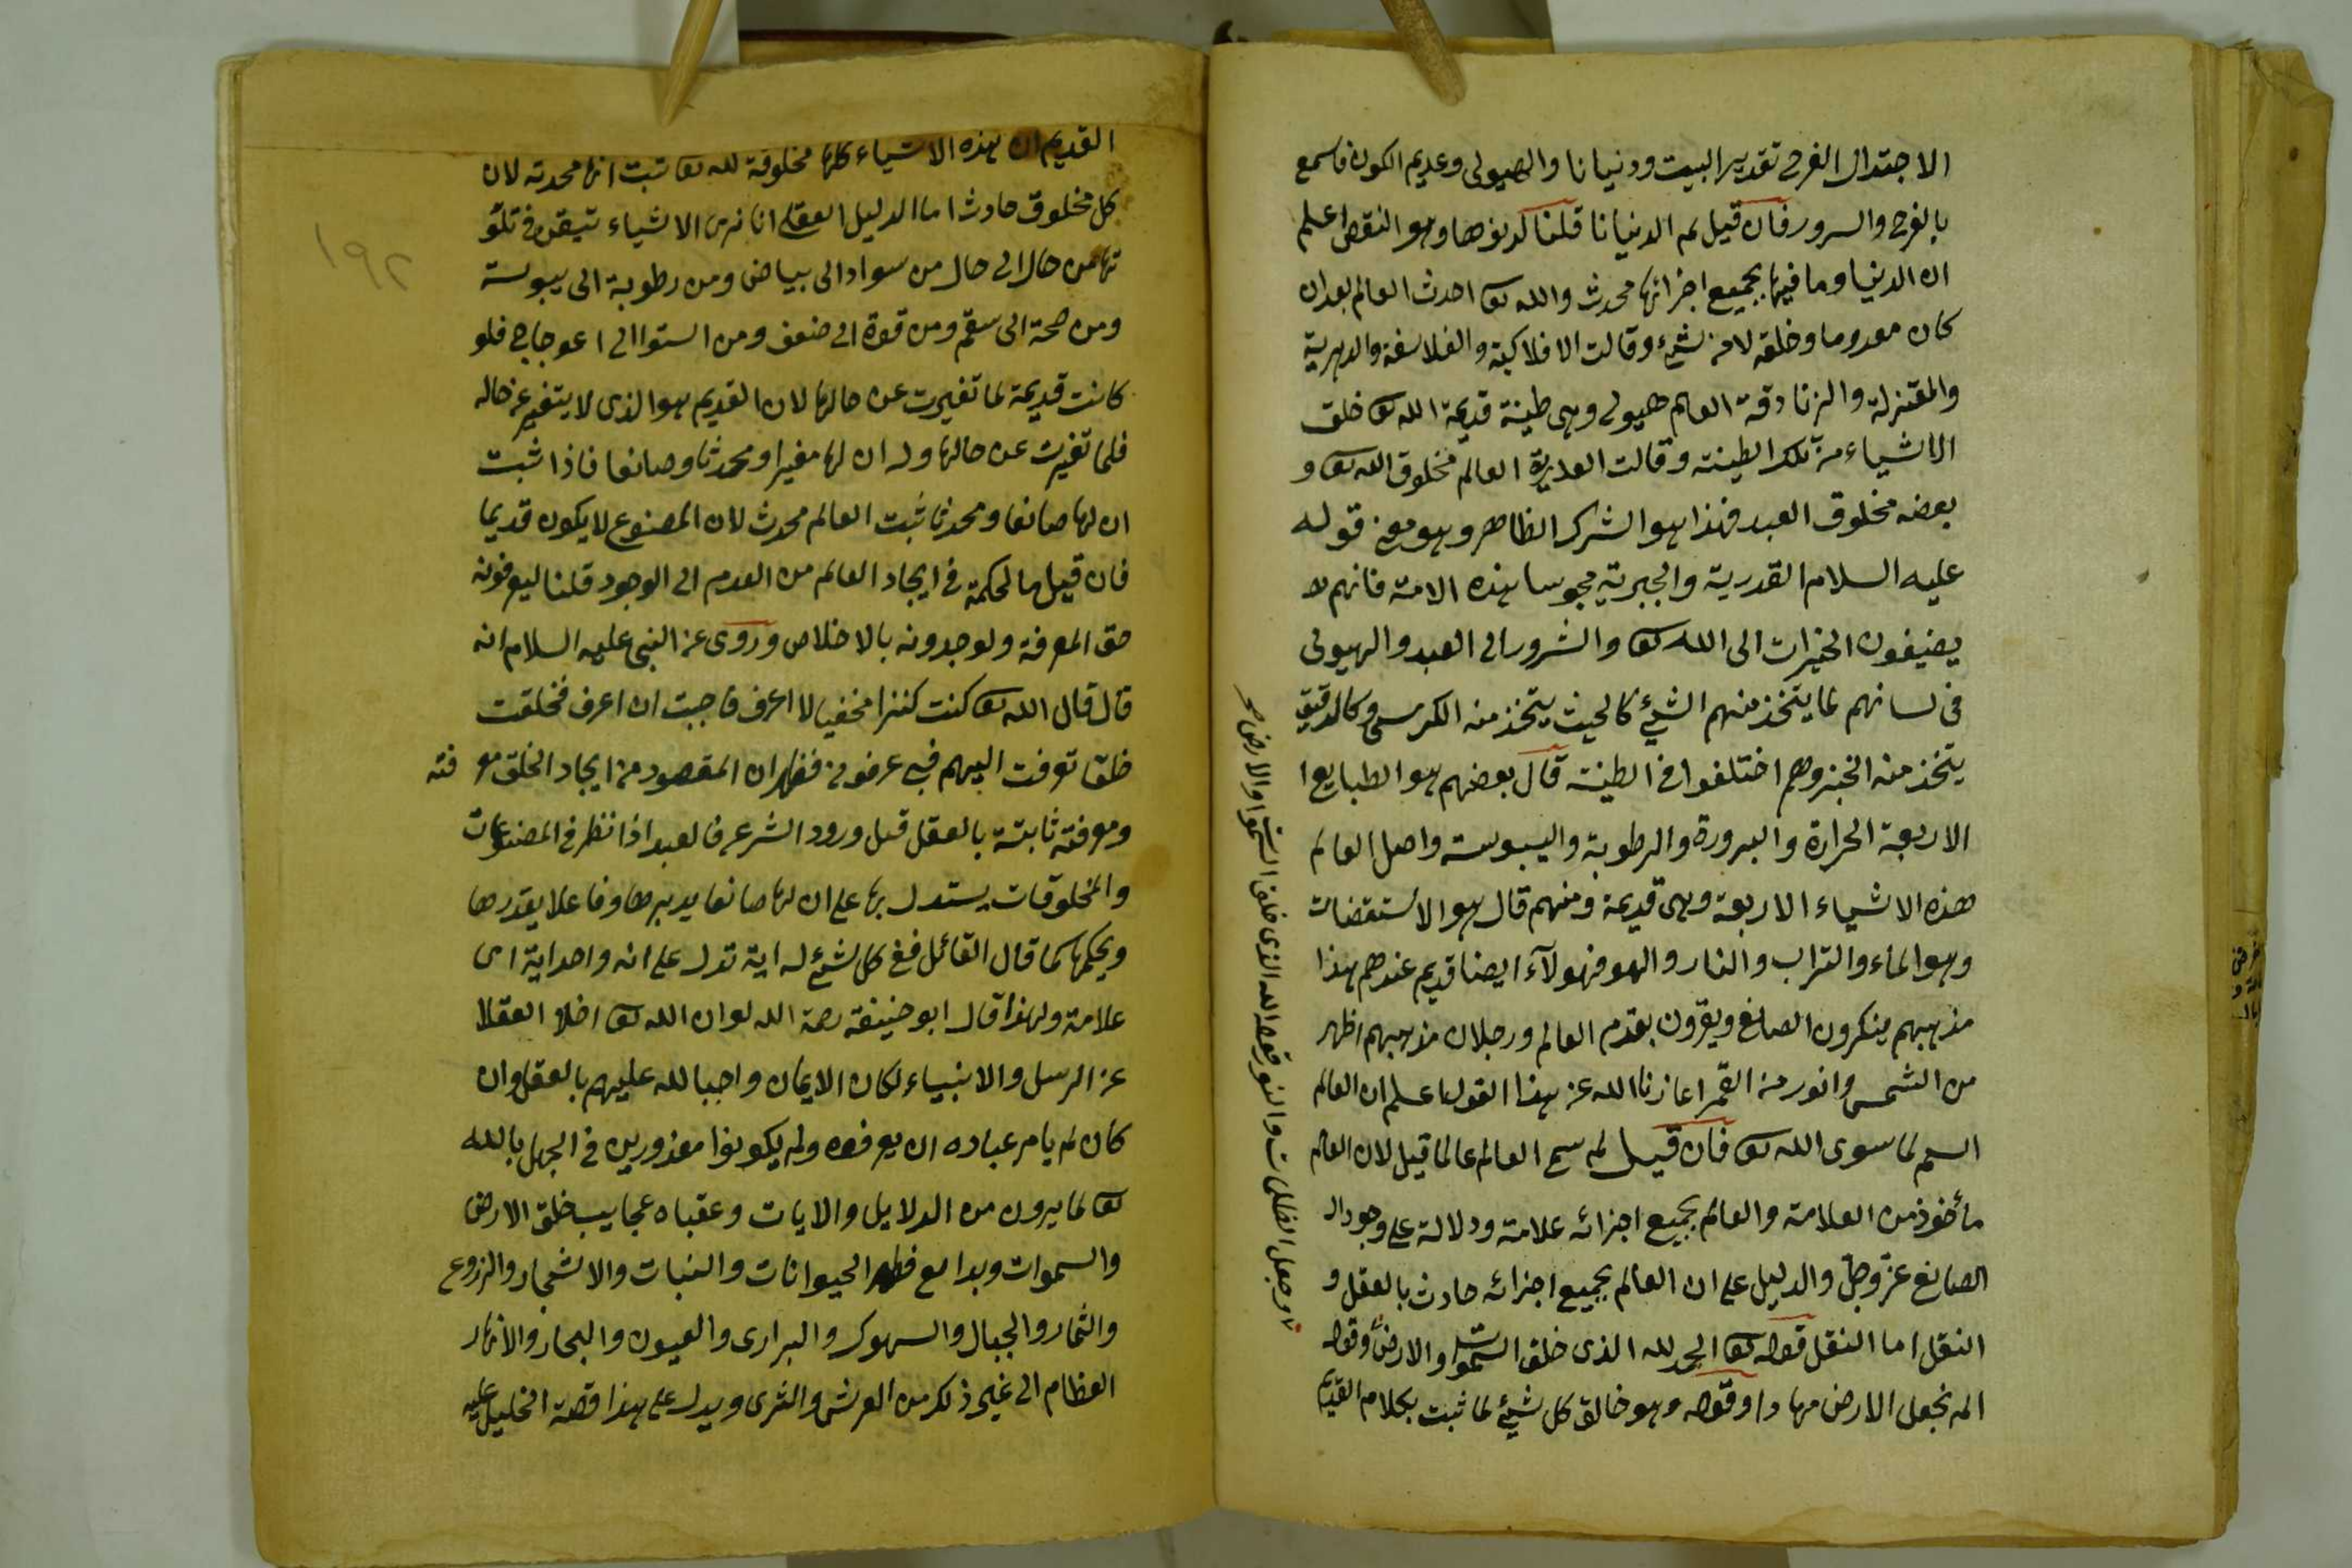 الاجتدال الفرح تقدير البيت ودنيانا والهيولى وعديم الكون فاسمع
بالفرح والسرور فان قيل لم الدنيانا قلنا لدنوها وهو النقص اعلم
ان الدنيا وما فيها بجميع اجزائها محدث والله تعا احدث العالم بعد ان
كان معدوما وخلقه لا من شيء وقالت الافلاكية والفلاسفة والدهرية
والمعتزلة والزنادقة العالم هيولى وهى طينة قديمة الله تعا خلق
الاشياء من تلك الطينة وقالت القدرية العالم مخلوق الله تعا و
بعضه مخلوق العبد فهذا هو الشرك الظاهر وهو معنى قوله
عليه السلام القدرية والجبرية مجوسا هذه الامة فانهم لا
يضيفون الخيرات الى الله تعا والشرور الى العبد والهيولى
فى لسانهم لما يتخذ منهم الشئ كالخشب يتخذ منه الكرسى وكالدقيق
يتخذ منه الخبز وهم اختلفوا فى الطينة قال بعضهم هو الطبايع ا
الاربعة الحرارة والبرورة والرطوبة واليبوسة واصل العالم
هذه الاشياء الاربعة وهى قديمة ومنهم قال هو الاستقضات
وهو الماء والتراب والنار والهو فهولآء ايضا قديم عندهم هذا
مذهبهم ينكرون الصانع ويقرون بقدم العالم وبطلان مذهبهم اظهر
من الشمس وانور من القمر اعاذنا الله عن هذا القول اعلم ان العالم
اسم لما سوى الله تعا فان قيل لم سمى العالم عالما قيل لان العالم
مأخوذ من العلامة والعالم بجميع اجزائه علامة ودلالة على وجود ال
الصانع عز وجل والدليل على ان العالم بجميع اجزائه حادث بالعقل و
النقل اما النقل قوله تعا الحمد لله الذى خلق السموات والارض وقوله
الم نجعل الارض مهادا وقوله وهو خالق كل شيئ لما ثبت بكلام القديم
وجعل الظلمات والنور قوله الله الذى خلق السموات والارض
١٩٢
القديم ان هذه الاشياء كلها مخلوقة لله تعا ثبت انها محدثة لان
كل مخلوق حادث اما الدليل العقلى انا نرى الاشياء تتيقن فى تلق
تها من حال الى حال من سواد الى بياض ومن رطوبة الى يبوسة
ومن صحة الى سقم ومن قوة الى ضعف ومن استوا الى اعوجاج فلو
كانت قديمة لما تغيرت عن حالها لان القديم هو الذى لا يتغير عن حاله
فلما تغيرت عن حالها دل ان لها مغيرا ومحدثا وصانعا فاذا ثبت
ان لها صانعا ومحدثا ثبت العالم محدث لان المصنوع لا يكون قديما
فان قيل ما لحكمة فى ايجاد العالم من العدم الى الوجود قلنا ليعرفونه
حق المعرفة ولوجدونه بالاخلاص وروى عن النبى عليه السلام انه
قال قال الله تعا كنت كنزا مخفيا لا اعرف فاحببت ان اعرف فخلقت
خلقا تعرفت اليهم فبى عرفونى فظهر ان المقصود من ايجاد الخلق معرفته
ومعرفته ثابتة بالعقل قبل ورود الشرع فالعبد اذا نظر فى المصنوعات
والمخلوقات يستدل بها على ان لها صانعا يدبرها وفاعلا يقدرها
ويحكمها كما قال القائل ففى كل شئ له اية تدل على انه واحد اية اى
علامة ولهذا قال ابو حنيفة رحمة الله لو ان الله تعا اخلا العقلا
عن الرسل والانبياء لكان الايمان واجبا لله عليهم بالعقل وان
كان لم يامر عباده ان يعرفوه ولم يكونوا معذورين فى الجهل بالله
تعا لما يرون من الدلايل والايات وعقباه عجايب خلق الارض
والسموات وبدايع فطر الحيوانات والنبات والاشجار والزروع
والثمار والجبال والسهول والبرارى والعيون والبحار والانهار
العظام الى غير ذلك من العرش والثرى ويدل على هذا قصة الخليل عليه